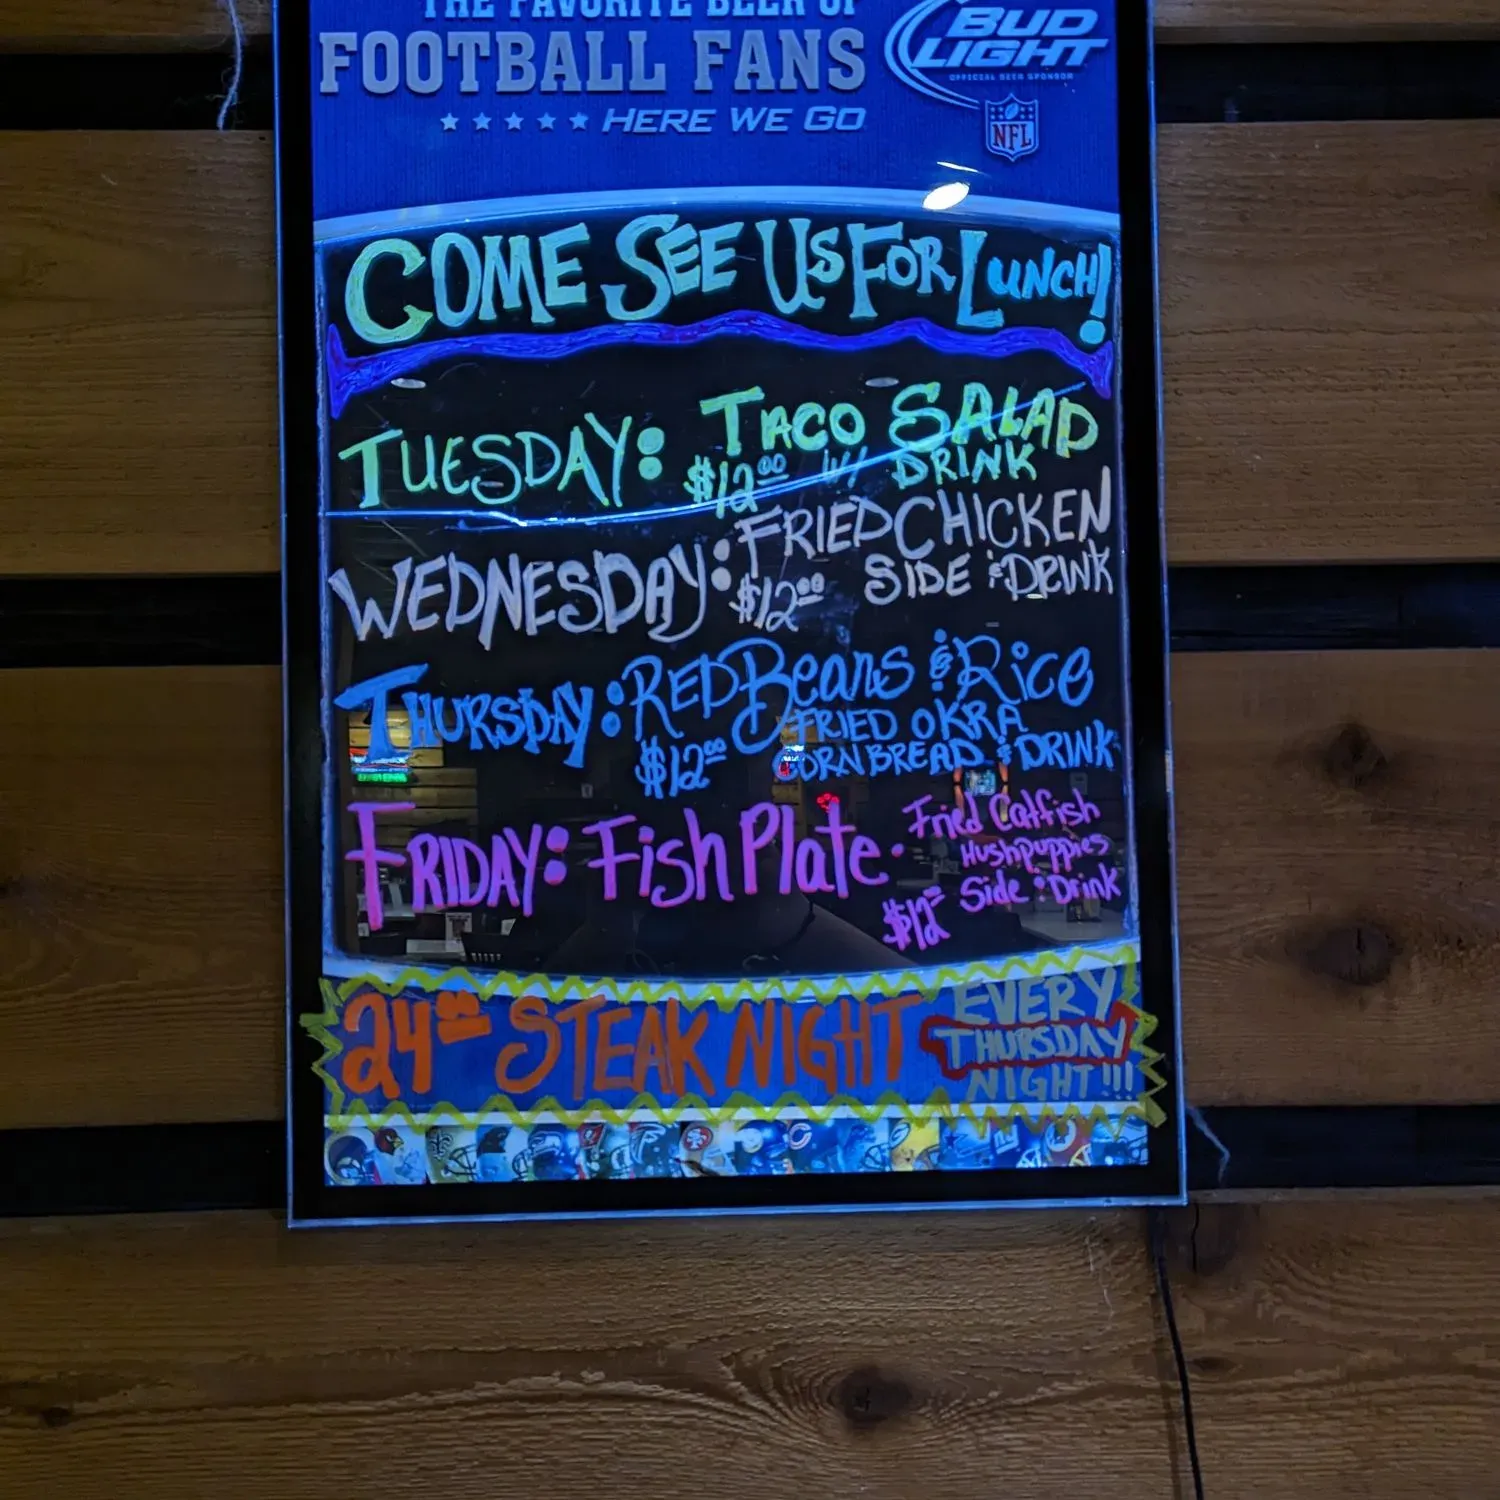 THE FAVORITE BEER OF
FOOTBALL FANS
HERE WE GO
BUD
LIGHT
OFFICIAL BEER SPONSOR
NFL
COME SEE US FOR LUNCH!
TUESDAY: TACO SALAD
$12.00 W/ DRINK
WEDNESDAY: FRIED CHICKEN
$12.00 SIDE & DRINK
THURSDAY: RED Beans & Rice
FRIED OKRA
$12.00 CORNBREAD & DRINK
FRIDAY: Fish Plate. Fried Catfish
Hushpuppies
$12 Side & Drink
24.00 STEAK NIGHT EVERY
THURSDAY
NIGHT!!!